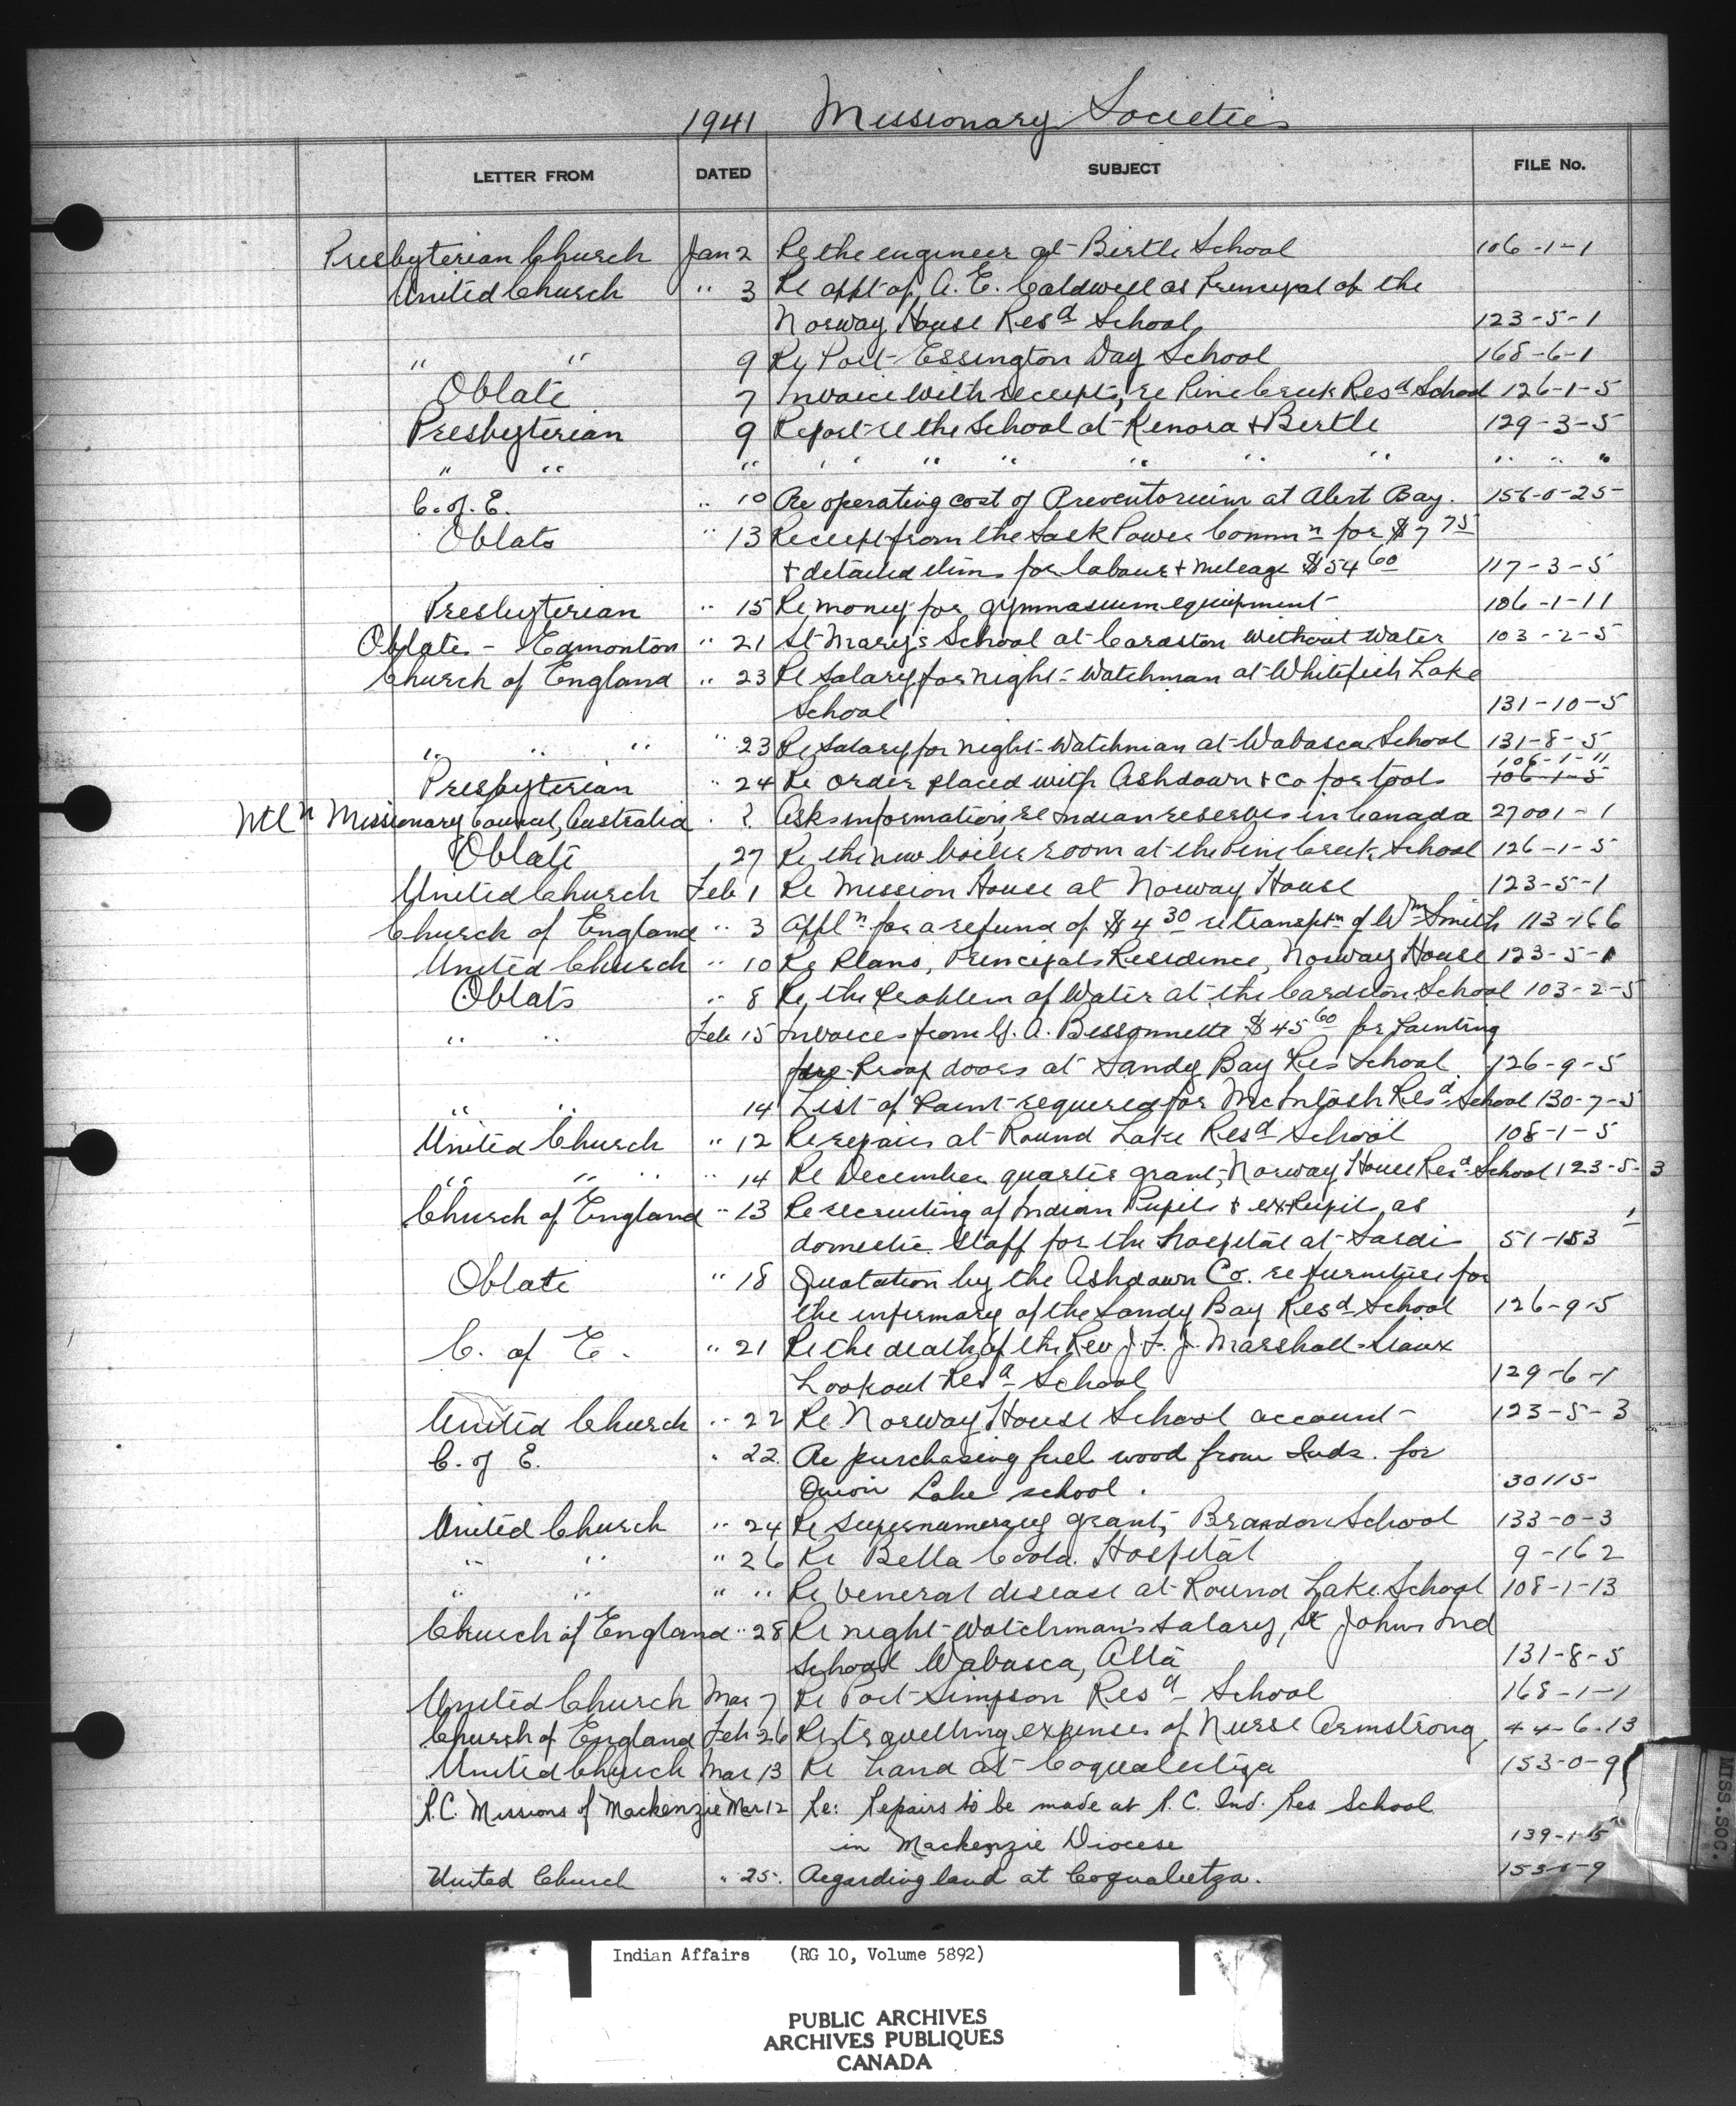 1941 Missionary Societies
LETTER FROM DATED SUBJECT FILE No.
Presbyterian Church Jan 2 Re the engineer at Birtle School 106-1-1
United Church " 3 Re appt of A. E. Caldwell as Principal of the
Norway House Resd School 123-5-1
" " 9 Re Port Essington Day School 168-6-1
Oblate 7 Invoice with receipts, re Pine Creek Resd School 126-1-5
Presbyterian 9 Report re the School at Kenora & Birtle 129-3-5
" " " " " " " " " " " " "
C. of E. " 10 Re operating cost of Preventorium at Alert Bay. 156-0-25
Oblats " 13 Receipt from the Sask Power Commn for $7 75
& detailed for labour & mileage $54 60 117-3-5
Presbyterian " 15 Re money for gymnasium equipment 106-1-11
Oblates - Edmonton " 21 St Mary's School at Cardston without water 103-2-5
Church of England " 23 Re salary for night-watchman at Whitefish Lake
School 131-10-5
" " " " 23 Re salary for night-watchman at Wabasca School 131-8-5
106-1-11
Presbyterian " 24 Re order placed with Ashdown & Co for tools 106-1-5
Ntln Missionary Council, Australia " ? Asks information, re Indian reserves in Canada 27001-1
Oblate " 27 Re the new boiler room at the Pine Creek School 126-1-5
United Church Feb 1 Re Mission House at Norway House 123-5-1
Church of England " 3 Appln for a refund of $4 30 re transptn of Wm Smith 113-166
United Church " 10 Re Plans, Principals Residence, Norway House 123-5-1
Oblats " 8 Re, the Problem of Water at the Cardston School 103-2-5
" " Feb 15 Invoices from A. Bessonnette $45 60 for Painting
Proof doors at Sandy Bay Res School 126-9-5
" " 14 List of Paint required for McIntosh Resd School 130-7-5
United Church " 12 Re repairs at Round Lake Resd School 108-1-5
" " " 14 Re December quarter grant, Norway House Resd School 123-5-3
Church of England " 13 Re recruiting of Indian Pupils & ex Pupils, as
domestic Staff for the hospital at Sardis 51-183 1
Oblate " 18 Quotation by the Ashdown Co. re furniture for
the infirmary of the Sandy Bay Resd School 126-9-5
C. of E. " 21 Re the death of the Rev J. F. J. Marshall - Sioux
Lookout Resd School 129-6-1
United Church " 22 Re Norway House School account 123-5-3
C. of E. " 22. Re purchasing fuel wood from Inds. for
Onion Lake school. 30115
United Church " 24 Re supernumerary grant, Brandon School 133-0-3
" " " 26 Re Bella Coola Hospital 9-162
" " " " Re Veneral disease at Round Lake School 108-1-13
Church of England " 28 Re night-watchman's salary, St Johns Ind
School Wabasca, Alta 131-8-5
United Church Mar 7 Re Port Simpson Resd School 168-1-1
Church of England Feb 26 Re travelling expenses of Nurse Armstrong 44-6-13
United Church Mar 13 Re Land at Coqualeetza 153-0-9
R.C. Missions of Mackenzie Mar 12 Re: Repairs to be made at R.C. Ind. Res School
in Mackenzie Diocese 139-1-5
United Church " 25. Regarding land at Coqualeetza. 153-0-9
MISS.SOC.
Indian Affairs (RG 10, Volume 5892)
PUBLIC ARCHIVES
ARCHIVES PUBLIQUES
CANADA